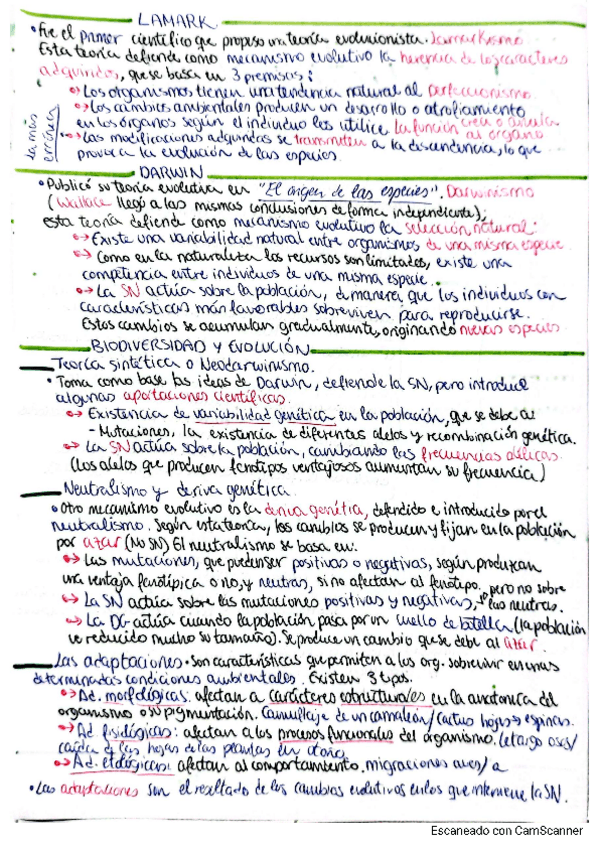 LAMARK
• Fue el primer científico que propuso una teoría evolucionista. Lamarkismo
Esta teoría defiende como mecanismo evolutivo la herencia de los caracteres
adquiridos, que se basa en 3 premisas:
↪ Los organismos tienen una tendencia natural al perfeccionismo.
↪ Los cambios ambientales producen un desarrollo o atrofiamiento
en los órganos según el individuo los utilice la función crea o anula al órgano
↪ Las modificaciones adquiridas se transmiten a la descendencia, lo que
provoca la evolución de las especies.
la más errónea
DARWIN
• Publicó su teoría evolutiva en "El origen de las especies". Darwinismo
(Wallace llegó a las mismas conclusiones de forma independiente);
esta teoría defiende como mecanismo evolutivo la selección natural:
↪ Existe una variabilidad natural entre organismos de una misma especie.
↪ Como en la naturaleza los recursos son limitados, existe una
competencia entre individuos de una misma especie.
↪ La SN actúa sobre la población, de manera que los individuos con
características más favorables sobreviven para reproducirse.
Estos cambios se acumulan gradualmente, originando nuevas especies
BIODIVERSIDAD Y EVOLUCIÓN
Teoría sintética o Neodarwinismo.
• Toma como base las ideas de Darwin, defiende la SN, pero introduce
algunas aportaciones científicas.
↪ Existencia de variabilidad genética en la población, que se debe a:
- Mutaciones, la existencia de diferentes alelos y recombinación genética.
↪ La SN actúa sobre la población, cambiando las frecuencias alélicas.
(Los alelos que producen fenotipos ventajosos aumentan su frecuencia)
Neutralismo y deriva genética.
• Otro mecanismo evolutivo es la deriva genétia, defendido e introducido por el
neutralismo. Según esta teoría, los cambios se producen y fijan en la población
por azar (No SN) El neutralismo se basa en:
↪ Las mutaciones, que pueden ser positivas o negativas, según produzcan
una ventaja fenotípica o no, y neutras, si no afectan al fenotipo.
↪ La SN actúa sobre las mutaciones positivas y negativas, pero no sobre las neutras.
↪ La DG actúa cuando la población pasa por un cuello de botella (la población
ve reducido mucho su tamaño). Se produce un cambio que se debe al azar.
Las adaptaciones • Son características que permiten a los org. sobrevivir en unas
determinadas condiciones ambientales. Existen 3 tipos.
↪ Ad. morfológicas: afectan a carácteres estructurales en la anatomía del
organismo o su pigmentación. Camuflaje de un camaleón/cactus hojas → espinas.
↪ Ad. fisiológicas: afectan a los procesos funcionales del organismo. Letargo osos/
caída de las hojas de las plantas en otoño
↪ Ad. etológicas: afectan al comportamiento. migraciones aves/
• Las adaptaciones son el resultado de los cambios evolutivos en los que interviene la SN.
Escaneado con CamScanner